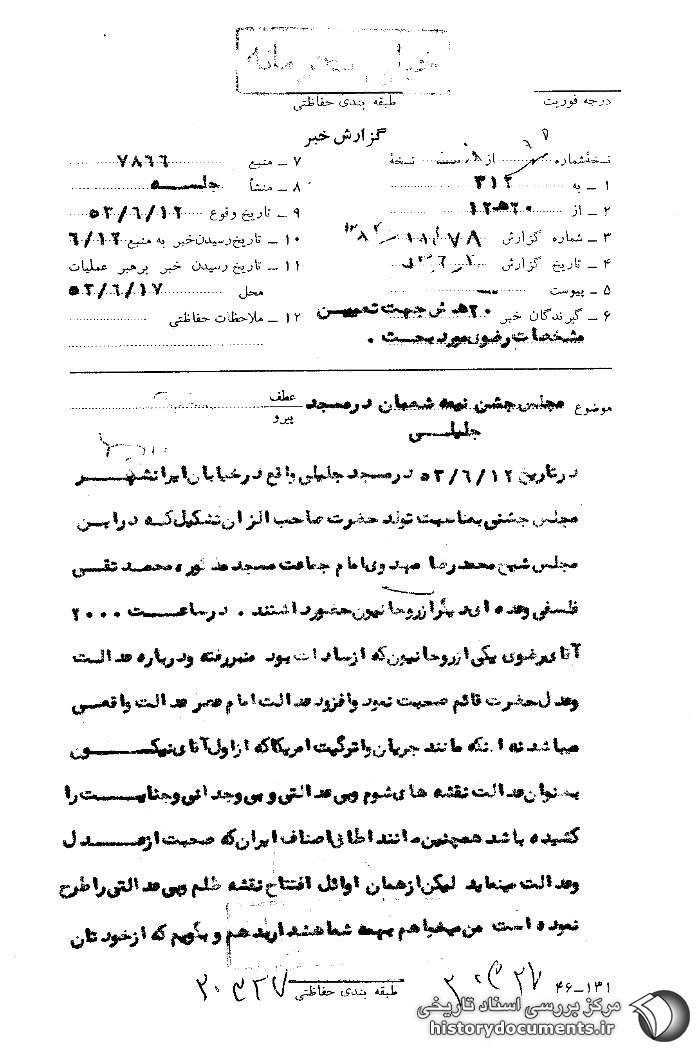 خیلی محرمانه
درجه فوریت
طبقه بندی حفاظتی
گزارش خبر
نسخهٔ شماره از نسخهٔ
۱ ـ به ۳۱۲
۲ ـ از ۲۰ ه‍ ۱۲
۳ ـ شماره گزارش ۱۱۸۷۸
۴ ـ تاریخ گزارش
۵ ـ پیوست
۶ ـ گیرندگان خبر ۲۰ ه‍ ش جهت تعیین
مشخصات رضوی مورد بحث .
۷ ـ منبع ۷۸۶۶
۸ ـ منشأ جلسه
۹ ـ تاریخ وقوع ۵۳/۶/۱۲
۱۰ ـ تاریخ رسیدن خبر به منبع ۶/۱۲
۱۱ ـ تاریخ رسیدن خبر برهبر عملیات
محل ۵۳/۶/۱۷
۱۲ ـ ملاحظات حفاظتی
موضوع مجلس جشن نیمه شعبان در مسجد
جلیلی
عطف
پیرو
در تاریخ ۵۳/۶/۱۲ در مسجد جلیلی واقع در خیابان ایرانشهر
مجلس جشنی بمناسبت تولد حضرت صاحب الزمان تشکیل که در این
مجلس شیخ محمد رضا مهدوی امام جماعت مسجد مذکور و محمد تقی
فلسفی وعده ای دیگر از روحانیون حضور داشتند . در ساعت ۲۰۰۰
آقای رضوی یکی از روحانیون که از سادات بود منبر رفته و درباره عدالت
وعدل حضرت قائم صحبت نمود و افزود عدالت امام عصر عدالت واقعی
میباشد نه اینکه مانند جریان واترگیت امریکا که از اول آقای نیکسون
بعنوان عدالت نقشه های شوم وبی عدالتی و بی وجدانی وجنایت را
کشیده باشد همچنین مانند اطاق اصناف ایران که صحبت از عدل
وعدالت مینماید لیکن از همان اوائل افتتاح نقشه ظلم وبی عدالتی را طرح
نموده است من میخواهم بهمه شما هشدار بدهم و بگویم که از خودتان
طبقه بندی حفاظتی
۲۰۳۲۷
۲۰۳۲۷
۴۶-۱۳۱
مرکز بررسی اسناد تاریخی
historydocuments.ir